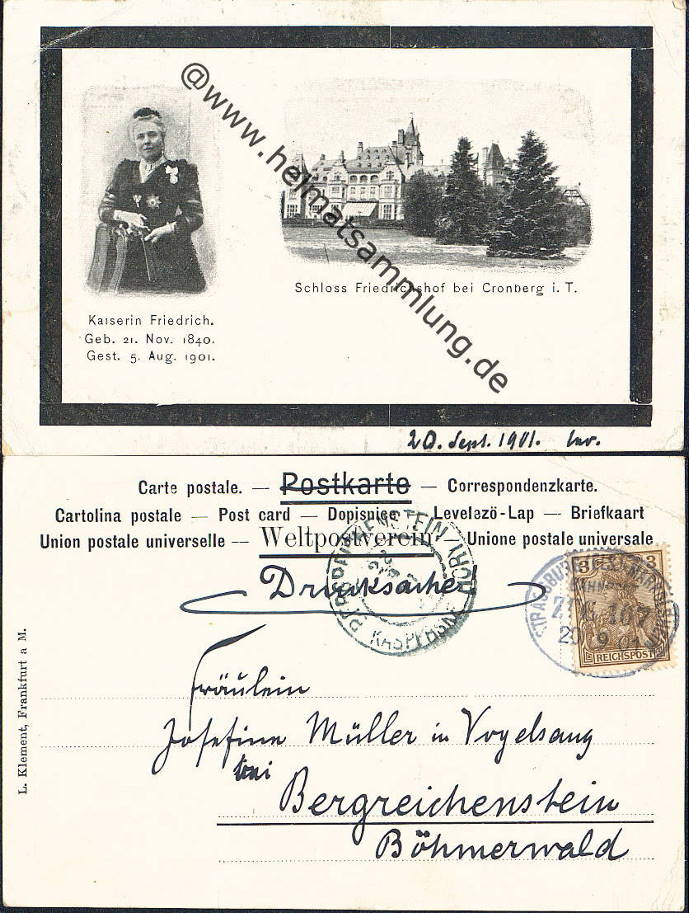 @www.heimatsammlung.de
Schloss Friedrichshof bei Cronberg i. T.
Kaiserin Friedrich.
Geb. 21. Nov. 1840.
Gest. 5. Aug. 1901.
20. Sept. 1901.
Carte postale. — Postkarte — Correspondenzkarte.
Cartolina postale — Post card — Dopisnice — Levelező-Lap — Briefkaart
Union postale universelle — Weltpostverein — Unione postale universale
Drucksache
BERGREICHENSTEIN
KAŠPERSKÉ HORY
STRASSBURG
ZUG 167
20 9 01
3 3
REICHSPOST
Fräulein
Josefine Müller in Vogelsang
bei
Bergreichenstein
Böhmerwald
L. Klement, Frankfurt a M.